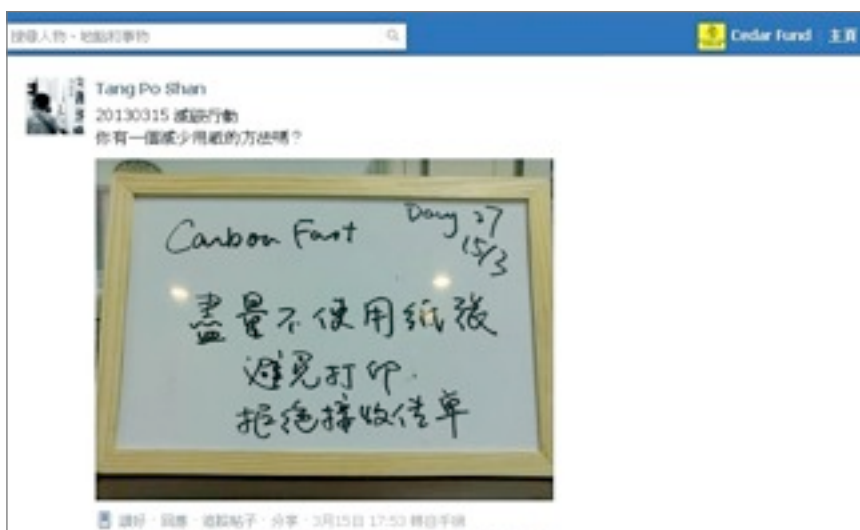 搜尋人物、地點和事物
Cedar Fund 主頁
Tang Po Shan
20130315 減碳行動
你有一個減少用紙的方法嗎？
Carbon Fast
Day 27
15/3
盡量不使用紙張
避免打印.
拒絕接收傳單
讚好 · 回應 · 追蹤帖子 · 分享 · 3月15日 17:53 轉自手機